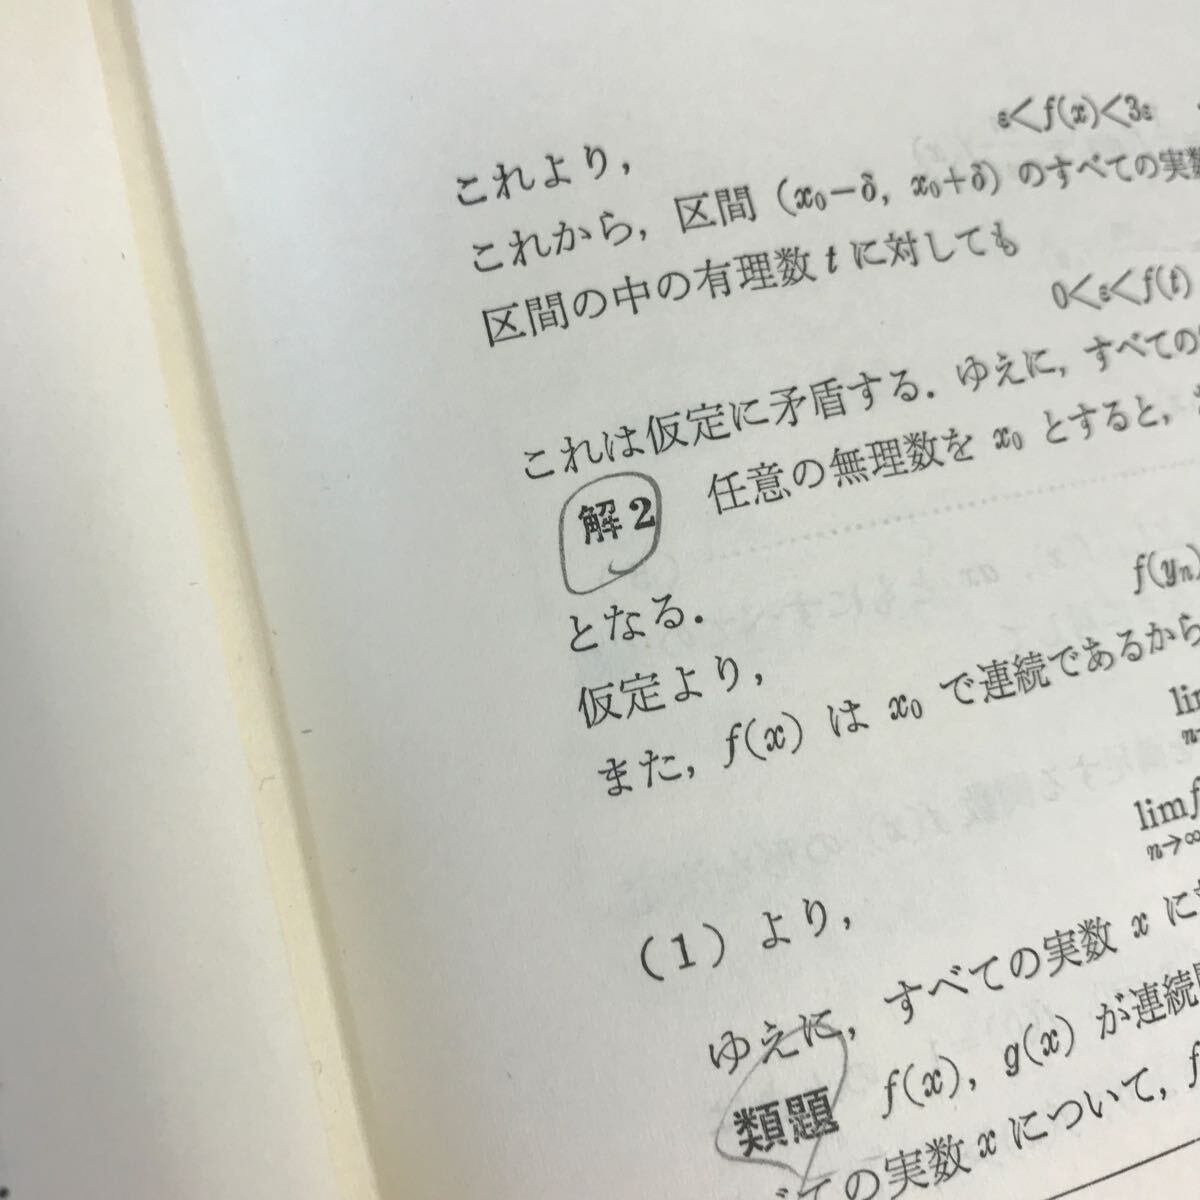 ε<f(x)<3ε
これより,
これから, 区間 (x₀−δ, x₀+δ) のすべての実数
区間の中の有理数 t に対しても
0<ε<f(t)
これは仮定に矛盾する. ゆえに, すべての
解2 任意の無理数を x₀ とすると,
f(yₙ)
となる.
仮定より,
また, f(x) は x₀ で連続であるから
lim
n→
lim f
n→∞
(1) より,
ゆえに, すべての実数 x に
類題 f(x), g(x) が連続
べての実数 x について, f